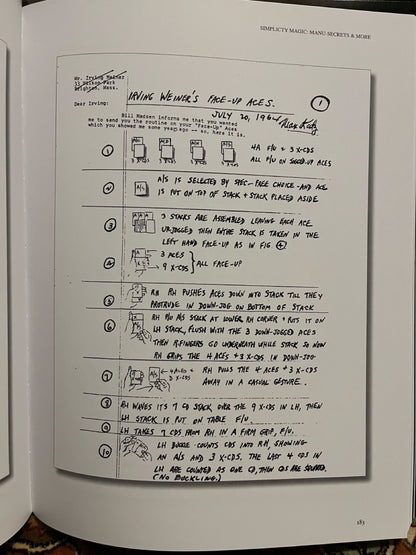 SIMPLICTY MAGIC: MANU-SECRETS & MORE
Mr. Irving Weiner
11 Wilson Park
Brighton, Mass.
IRVING WEINER'S FACE-UP ACES.
1
Dear Irving:
JULY 20, 1964
Bill Madsen informs me that you wanted
me to send you the routine on your "Face-Up" Aces
which you showed me some years ago -- so, here it is.
1
4A F/U & 3 X-CDS
ALL F/U ON JOGGED-UP ACES
2
A/S
A/S IS SELECTED BY SPEC - FREE CHOICE - AND ACE
IS PUT ON TOP OF STACK & STACK PLACED ASIDE.
3
3 STACKS ARE ASSEMBLED LEAVING EACH ACE
UPJOGGED THEN ENTIRE STACK IS TAKEN IN THE
LEFT HAND FACE-UP AS IN FIG 4
4
3 ACES
9 X-CDS } ALL FACE-UP
5
RH PUSHES ACES DOWN INTO STACK TILL THEY
PROTRUDE IN DOWN-JOG ON BOTTOM OF STACK
6
RH P/U A/S STACK AT LOWER RH CORNER & PUTS IT ON
LH STACK, FLUSH WITH THE 3 DOWN-JOGGED ACES
THEN R.FINGERS GO UNDERNEATH WHILE STACK SO NOW
RH GRIPS THE 4 ACES & 3 X-CDS IN DOWN-JOG
7
4 ACES &
3 X-CDS
RH PULLS THE 4 ACES & 3 X-CDS
AWAY IN A CASUAL GESTURE..
8
RH WAVES IT'S 7 CD STACK, OVER THE 9 X-CDS IN LH, THEN
LH STACK IS PUT ON TABLE F/U.
9
LH TAKES 7 CDS FROM RH IN A FIRM GRIP, F/U.
10
LH BUCKLE-COUNTS CDS INTO RH, SHOWING
AN A/S AND 3 X-CDS. THE LAST 4 CDS IN
LH ARE COUNTED AS ONE CD, THEN CDS ARE SQUARED.
(NO BUCKLING.)
183